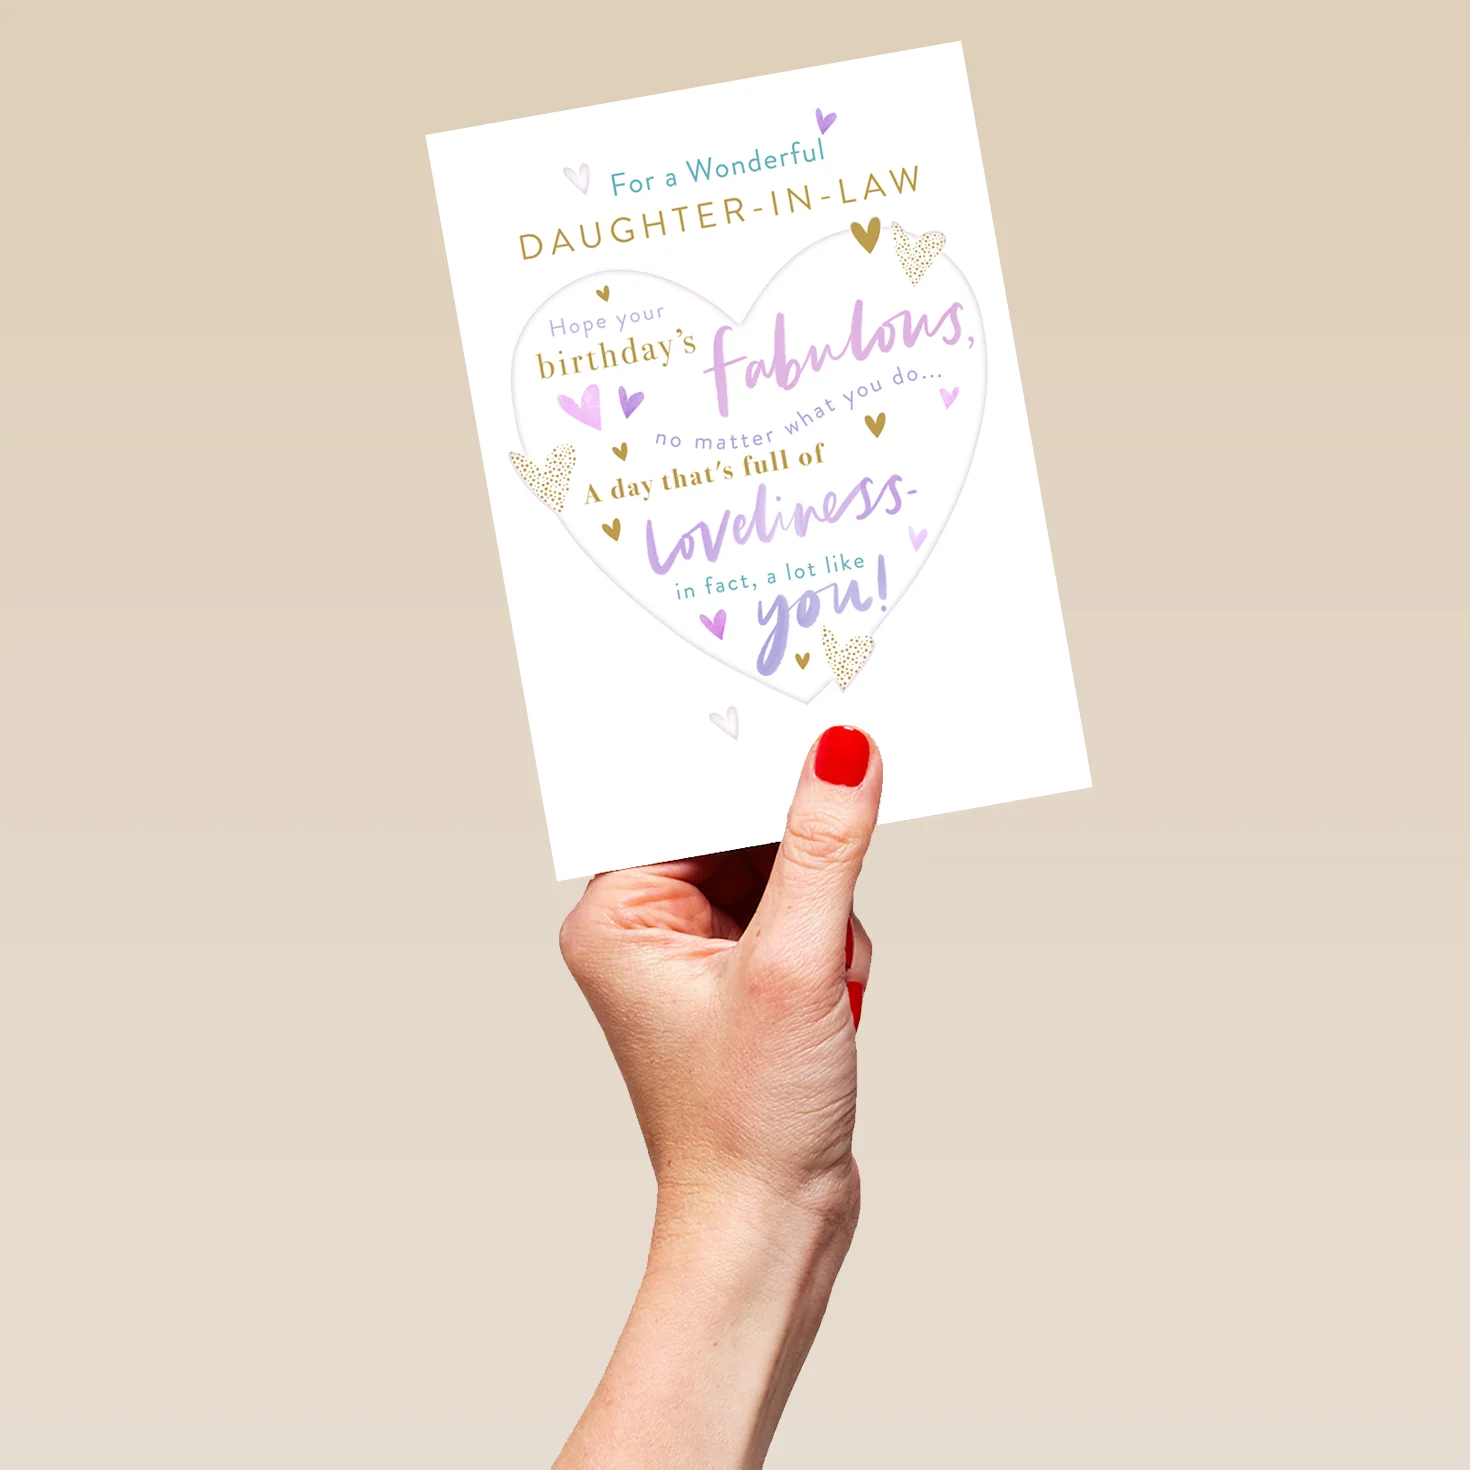 For a Wonderful
DAUGHTER-IN-LAW
Hope your
birthday's
fabulous,
no matter what you do...
A day that's full of
loveliness-
in fact, a lot like
you!